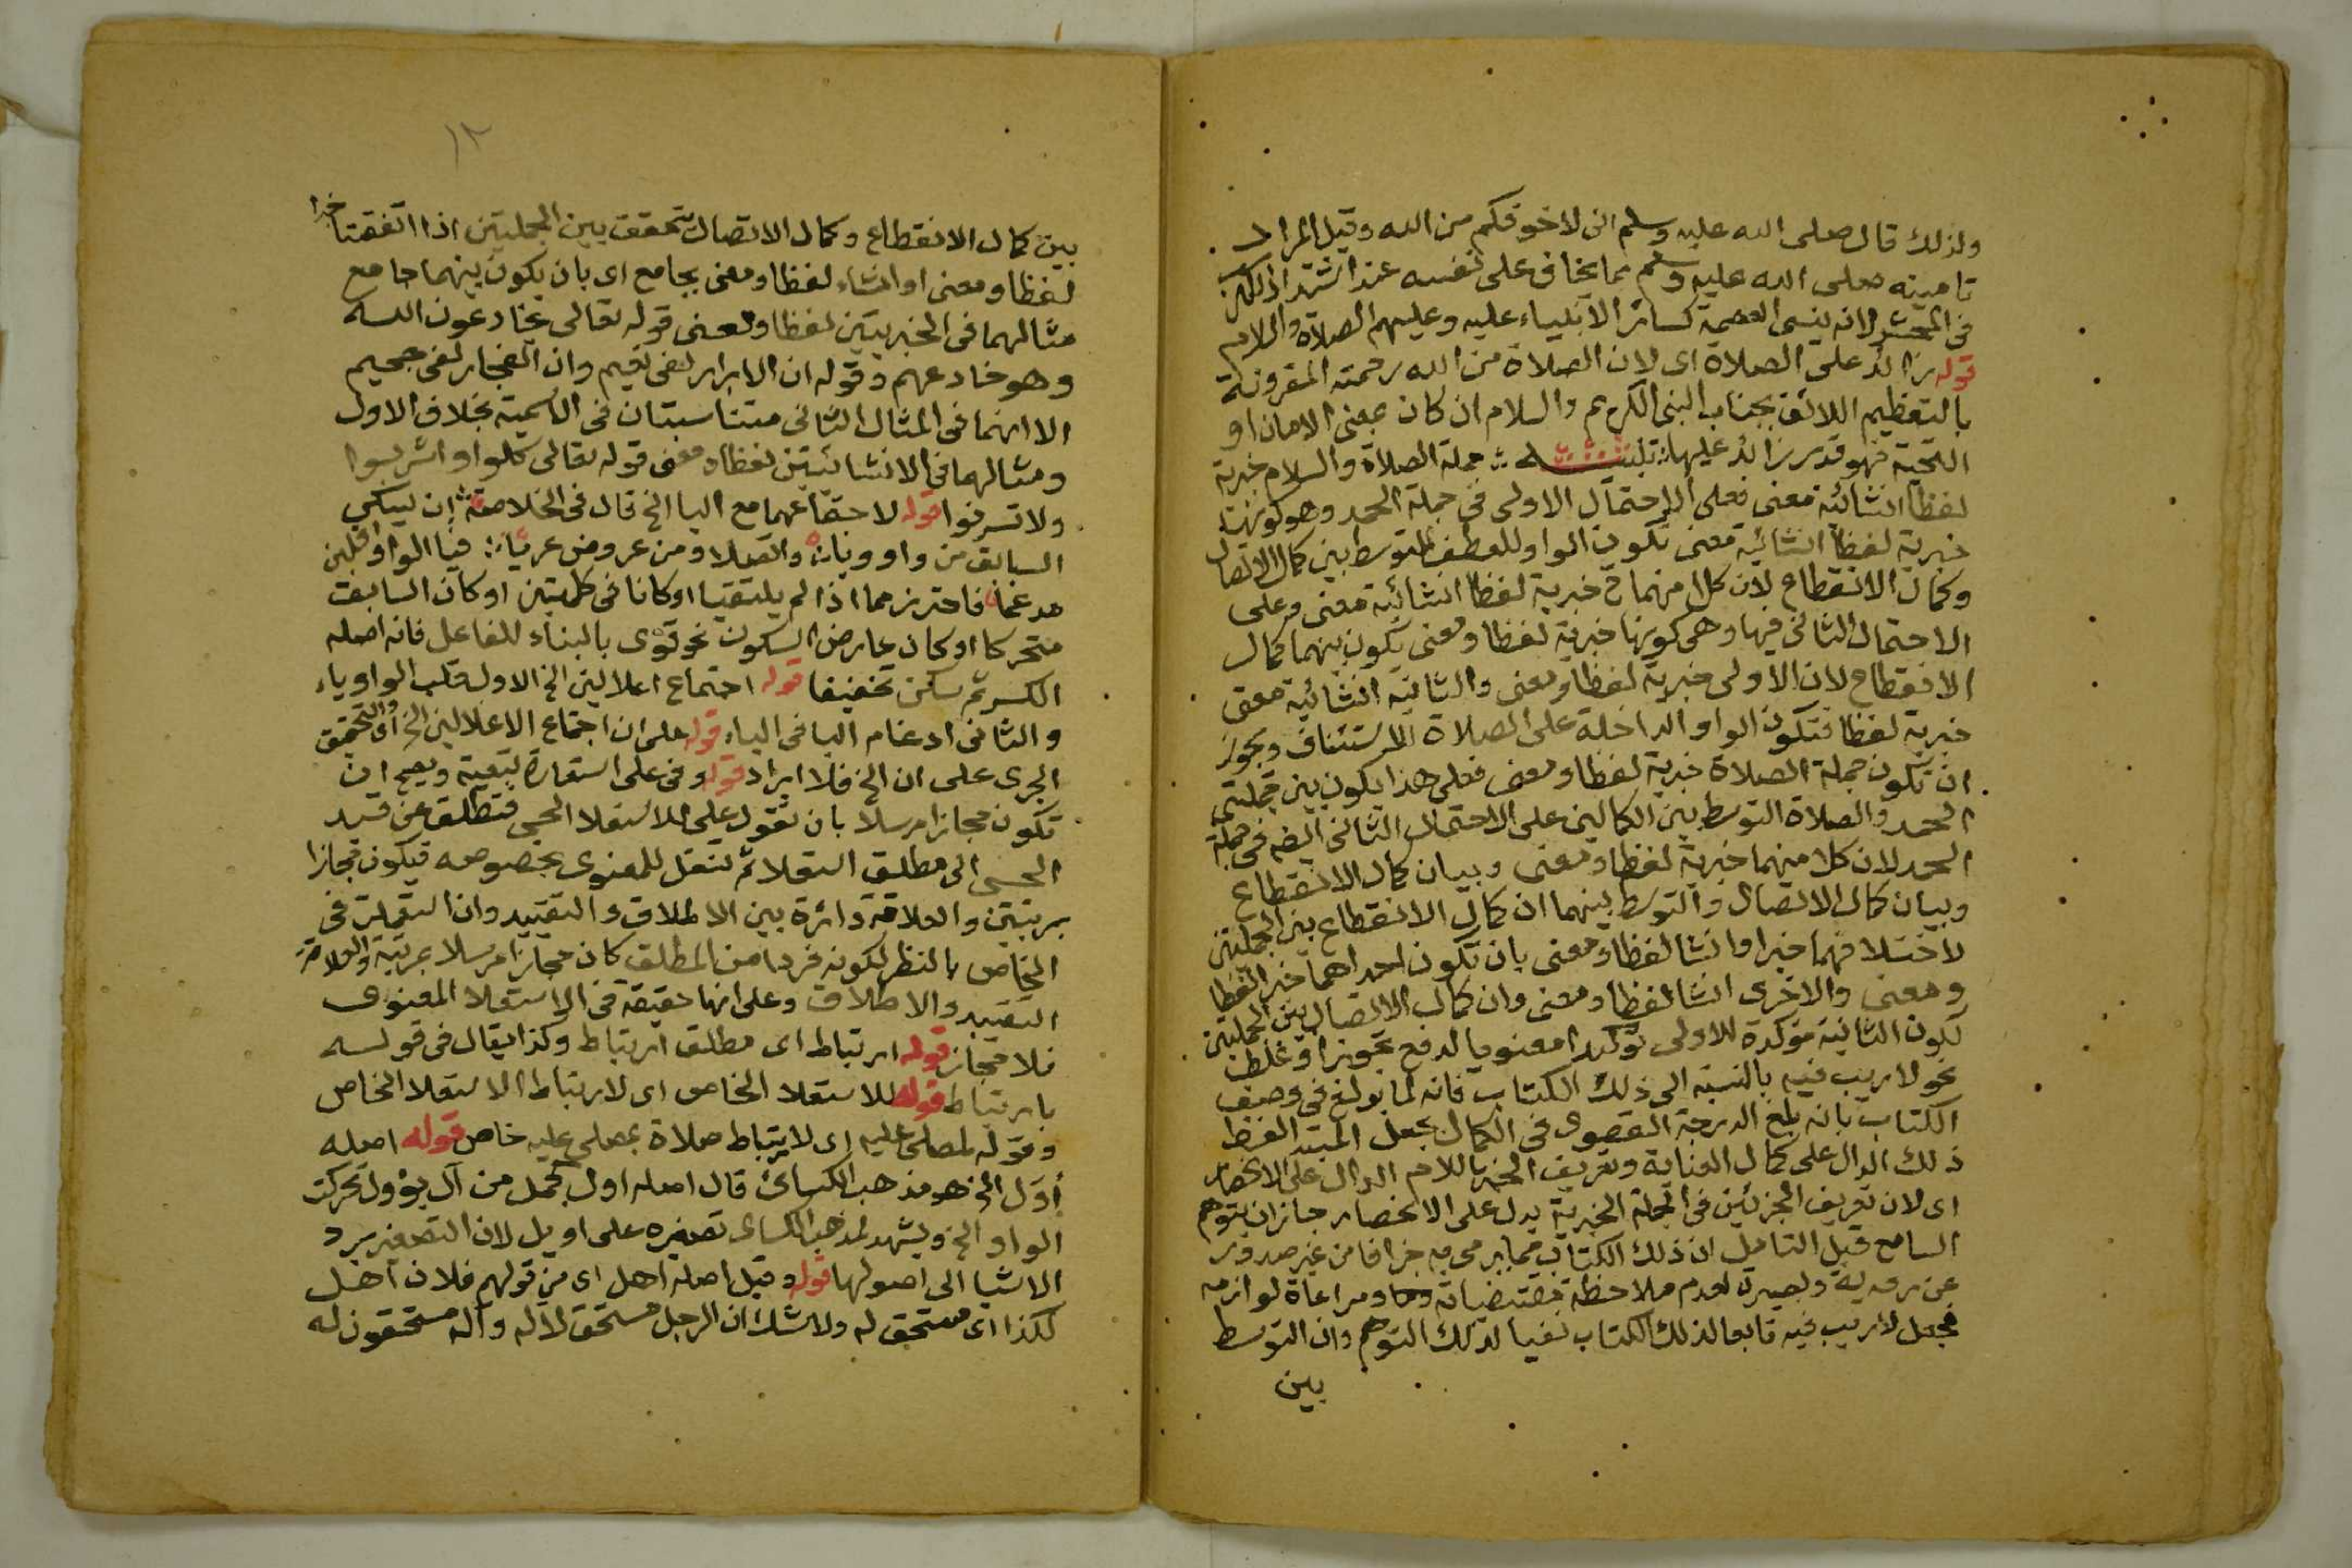 ولذلك قال صلى الله عليه وسلم انى لاخوفكم من الله وقيل المراد
تامينه صلى الله عليه وسلم مما يخاف على نفسه عند اشتداد الكرب
فى المحشر لانه ينسى العصمة كسائر الانبياء عليه وعليهم الصلاة والسلام
قوله زائد على الصلاة اى لان الصلاة من الله رحمته المقرونة
بالتعظيم اللائق بجناب النبى الكريم والسلام ان كان بمعنى الامان او
التحية فهو قدر زائد عليها تنبيه جملة الصلاة والسلام خبرية
لفظا انشائية معنى فعلى الاحتمال الاولى فى جملة الحمد وهو كونها
خبرية لفظا انشائية معنى تكون الواو للعطف للتوسط بين كمال الاتصال
وكمال الانقطاع لان كلا منهما ح خبرية لفظا انشائية معنى وعلى
الاحتمال الثانى فيها وهى كونها خبرية لفظا ومعنى يكون بينهما كمال
الانقطاع لان الاولى خبرية لفظا ومعنى والثانية انشائية معنى
خبرية لفظا فتكون الواو الداخلة على الصلاة للاستئناف ويجوز
ان تكون جملة الصلاة خبرية لفظا ومعنى فعلى هذا يكون بين جملتى
الحمد والصلاة التوسط بين الكمالين على الاحتمال الثانى ايضا فى جملة
الحمد لان كلا منهما خبرية لفظا ومعنى وبيان كمال الانقطاع
وبيان كمال الاتصال والتوسط بينهما ان كمال الانقطاع بين الجملتين
لاختلافهما خبرا وانشا لفظا ومعنى بان تكون احداهما خبرا لفظا
ومعنى والاخرى انشا لفظا ومعنى وان كمال الاتصال بين الجملتين
لكون الثانية مؤكدة للاولى توكيدا معنويا لدفع تجوز او غلط
نحو لا ريب فيه بالنسبة الى ذلك الكتاب فانه لما بولغ فى وصف
الكتاب بانه بلغ الدرجة القصوى فى الكمال بجعل المبتدا لفظ
ذلك الدال على كمال العناية وتعريف الخبر باللام الدال على الانحصار
اى لان تعريف الجزئين فى الجملة الخبرية يدل على الانحصار جاز ان يتوهم
السامع قبل التامل ان ذلك الكتاب مما يرمى به جزافا من غير صدور
عن روية وبصيرة لعدم ملاحظة مقتضياته ومراعاة لوازمه
فجعل لا ريب فيه تابعا لذلك الكتاب نفيا لذلك التوهم وان التوسط
بين
١٢
بين كمال الانقطاع وكمال الاتصال يتحقق بين الجملتين اذا اتفقتا خبرا
لفظا ومعنى او انشاء لفظا ومعنى بجامع اى بان يكون بينهما جامع
مثالهما فى الخبريتين لفظا ومعنى قوله تعالى يخادعون الله
وهو خادعهم وقوله ان الابرار لفى نعيم وان الفجار لفى جحيم
الا انهما فى المثال الثانى متناسبتان فى الاسمية بخلاف الاول
ومثالهما فى الانشائيتين لفظا ومعنى قوله تعالى كلوا واشربوا
ولا تسرفوا قوله لاجتماعهما مع اليا الخ قال فى الخلاصة ان يسكن
السابق من واو ويا واتصلا ومن عروض عريا فيا الواو اقلبن
مدغما فاحترز مما اذا لم يلتقيا او كانا فى كلمتين او كان السابق
متحركا او كان عارض السكون نحو قوى بالبناء للفاعل فانه اصله
الكسر ثم سكن تخفيفا قوله اجتماع اعلالين الخ الاول قلب الواو ياء
والثانى ادغام اليا فى الياء قوله على ان اجتماع الاعلالين الخ اى والتحقيق
الجرى على ان الخ فلا ايراد قوله وفى على استعارة تبعية ويصح ان
تكون مجازا مرسلا بان تقول على للاستعلا الحسى فتطلق عن قيد
الحسى الى مطلق استعلا ثم تنقل للمعنوى بخصوصه فيكون مجازا
بمرتبتين والعلاقة دائرة بين الاطلاق والتقييد وان استعملت فى
الخاص بالنظر لكونه فردا من المطلق كان مجازا مرسلا بمرتبة والعلاقة
التقييد والاطلاق وعلى انها حقيقة فى الاستعلا المعنوى
فلا مجاز قوله ارتباط اى مطلق ارتباط وكذا يقال فى قوله
بارتباط قوله للاستعلا الخاص اى لارتباط الاستعلا الخاص
وقوله لمصلى عليه اى لارتباط صلاة بمصلى عليه خاص قوله اصله
أول الخ هو مذهب الكسائى قال اصله اول كجمل من آل يؤول تحركت
الواو الخ ويشهد لمذهب الكسائى تصغيره على اويل لان التصغير يرد
الاشيا الى اصولها قوله وقيل اصله اهل اى من قولهم فلان اهل
لكذا اى مستحق له ولا شك ان الرجل مستحق لآله وآله مستحقون له